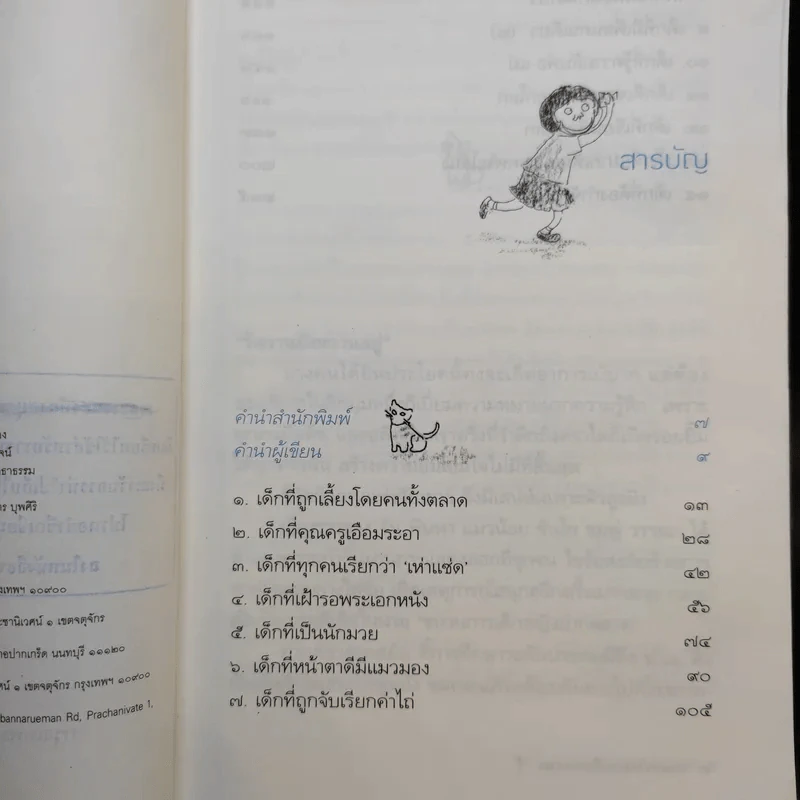 สารบัญ
คำนำสำนักพิมพ์ ๗
คำนำผู้เขียน ๙
๑. เด็กที่ถูกเลี้ยงโดยคนทั้งตลาด ๑๓
๒. เด็กที่คุณครูเอือมระอา ๒๘
๓. เด็กที่ทุกคนเรียกว่า ‘เห่าแซ่ด’ ๔๒
๔. เด็กที่เฝ้ารอพระเอกหนัง ๕๖
๕. เด็กที่เป็นนักมวย ๗๔
๖. เด็กที่หน้าตาดีมีแมวมอง ๙๐
๗. เด็กที่ถูกจับเรียกค่าไถ่ ๑๐๕
บุพศิริ
๑๐๙๐๐
๑ เขตจตุจักร
ปากเกร็ด นนทบุรี ๑๑๑๒๐
๑ เขตจตุจักร กรุงเทพฯ ๑๐๙๐๐
bannarueman Rd, Prachanivate 1,